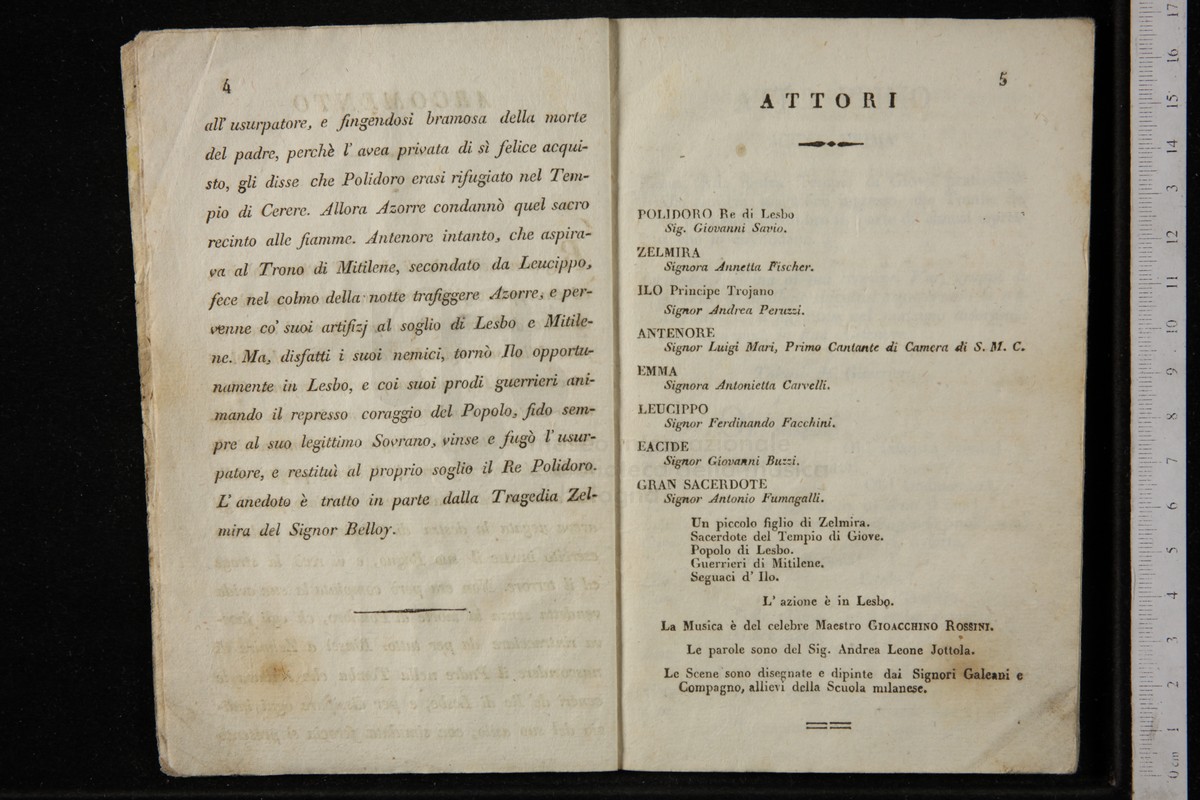 4
all' usurpatore, e fingendosi bramosa della morte
del padre, perchè l' avea privata di sì felice acqui-
sto, gli disse che Polidoro erasi rifugiato nel Tem-
pio di Cerere. Allora Azorre condannò quel sacro
recinto alle fiamme. Antenore intanto, che aspira-
va al Trono di Mitilene, secondato da Leucippo,
fece nel colmo della notte trafiggere Azorre, e per-
venne co' suoi artifizj al soglio di Lesbo e Mitile-
ne. Ma, disfatti i suoi nemici, tornò Ilo opportu-
namente in Lesbo, e coi suoi prodi guerrieri ani-
mando il represso coraggio del Popolo, fido sem-
pre al suo legittimo Sovrano, vinse e fugò l' usur-
patore, e restituì al proprio soglio il Re Polidoro.
L' anedoto è tratto in parte dalla Tragedia Zel-
mira del Signor Belloy.
5
ATTORI
POLIDORO Re di Lesbo
Sig. Giovanni Savio.
ZELMIRA
Signora Annetta Fischer.
ILO Principe Trojano
Signor Andrea Peruzzi.
ANTENORE
Signor Luigi Mari, Primo Cantante di Camera di S. M. C.
EMMA
Signora Antonietta Carvelli.
LEUCIPPO
Signor Ferdinando Facchini.
EACIDE
Signor Giovanni Buzzi.
GRAN SACERDOTE
Signor Antonio Fumagalli.
Un piccolo figlio di Zelmira.
Sacerdote del Tempio di Giove.
Popolo di Lesbo.
Guerrieri di Mitilene.
Seguaci d' Ilo.
L' azione è in Lesbo.
La Musica è del celebre Maestro GIOACCHINO ROSSINI.
Le parole sono del Sig. Andrea Leone Jottola.
Le Scene sono disegnate e dipinte dai Signori Galeani e
Compagno, allievi della Scuola milanese.
0 cm 1 2 3 4 5 6 7 8 9 10 11 12 13 14 15 16 17